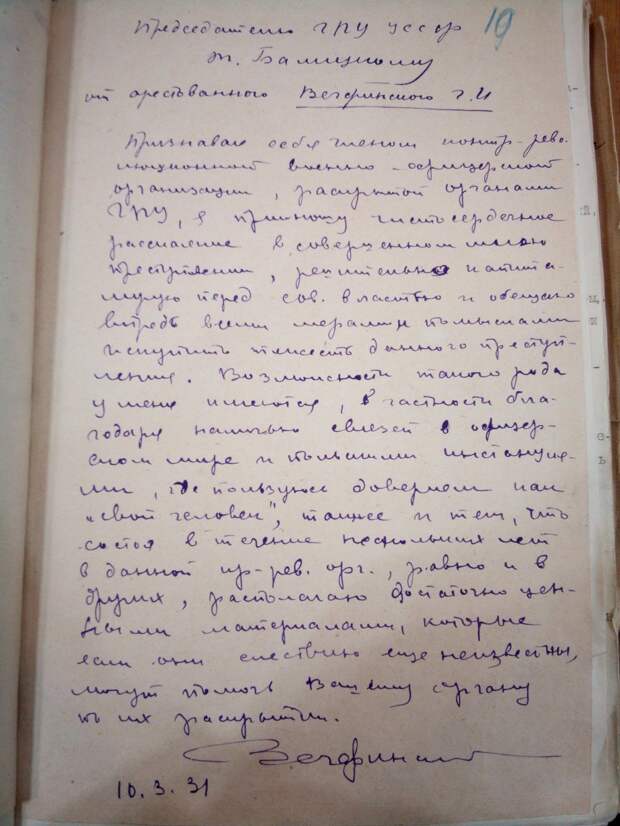 Председателю ГПУ УССР 19
т. Балицкому
от арестованного Вечфинского Г.И
Признавая себя членом контр-рево-
люционной военно-офицерской
организации, раскрытой органами
ГПУ, я приношу чистосердечное
раскаяние в совершенном мною
преступлении, решительно
перед сов. властью и обещаю
впредь всеми мерами и помыслами
искупить тяжесть данного преступ-
ления. Возможности такого рода
у меня имеются, в частности бла-
годаря наличью связей в офицер-
ском мире и польскими инстанция-
ми, где пользуюсь доверием как
"свой человек", также и тем, что
состоя в течение нескольких лет
в данной кр-рев. орг., равно и в
других, располагаю достаточно цен-
ными материалами, которые
если они следствию еще неизвестны,
могут помочь Вашему органу
в их раскрытии.
10.3.31